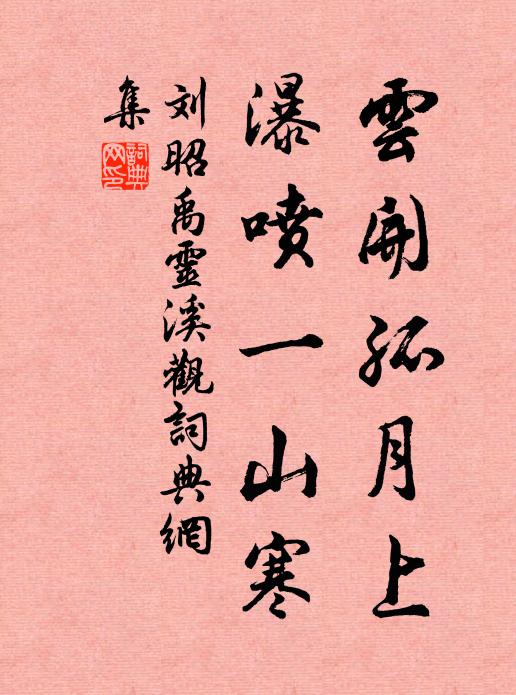 雲開孤月上
瀑噴一山寒
刘昭禹靈溪觀詞典網
集
詞典
网印